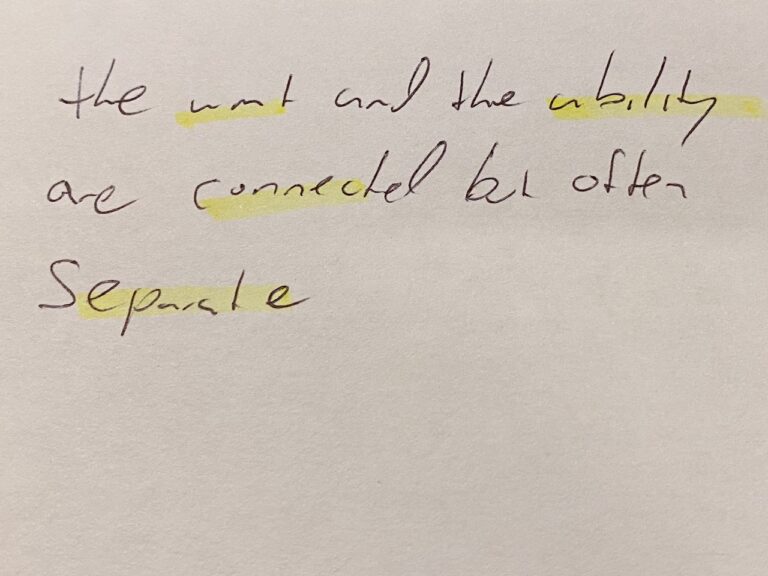 the want and the ability
are connected but often
Separate